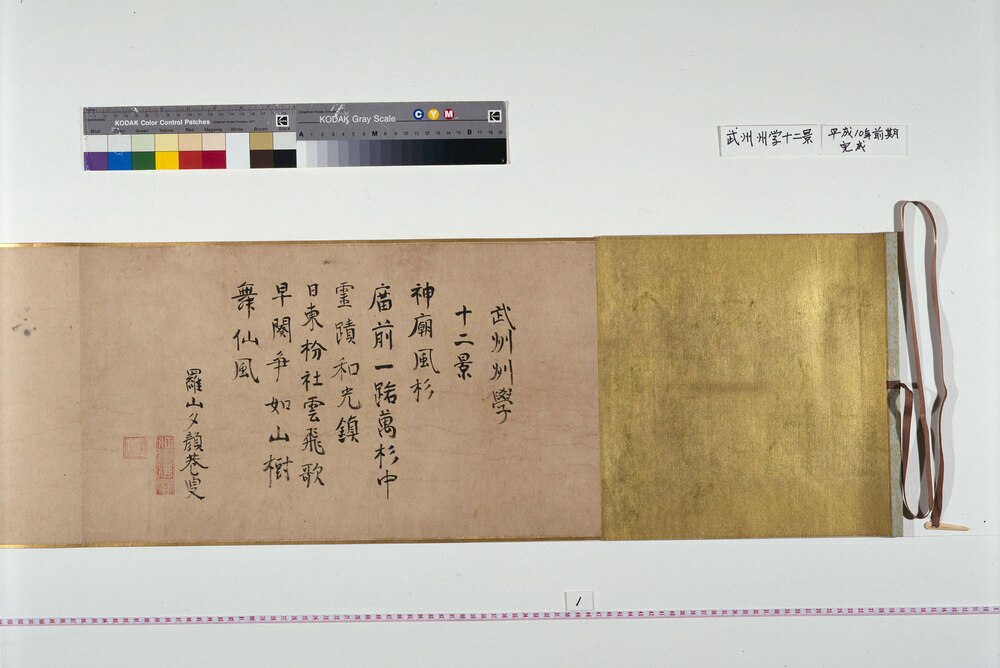 KODAK Color Control Patches
Blue Green Yellow Red Magenta White Brown Black
KODAK Gray Scale
C Y M
A 1 2 3 4 5 6 M 8 9 10 11 12 13 14 15 B 17 18 19
武州州学十二景
平成10年前期
完成
武州州學
十二景
神廟風杉
廟前一路萬杉中
靈蹟和光鎮
日東枌社雲飛歌
早闋爭如山樹
舞仙風
羅山夕顏巷叟
1